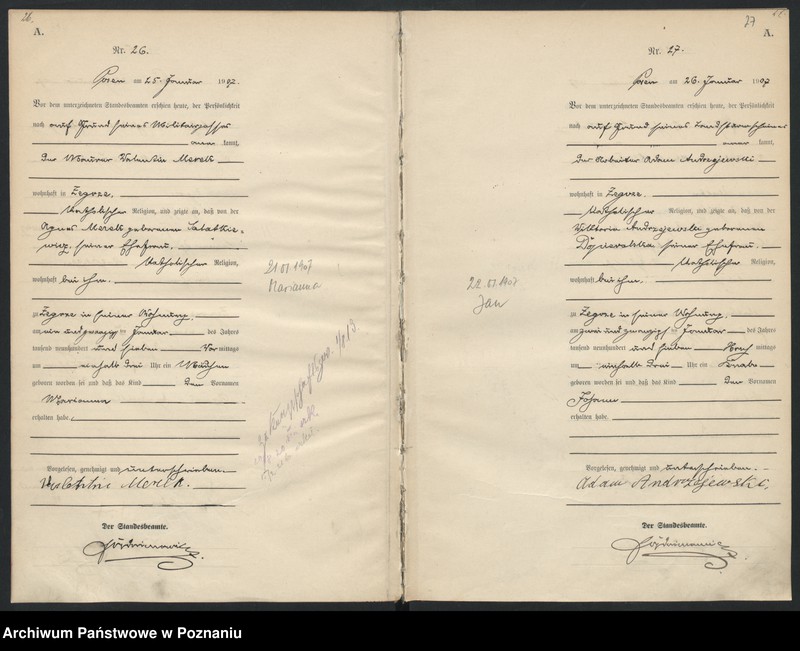 26.
A.
Nr. 26.
Posen am 25. Januar 1907.
Vor dem unterzeichneten Standesbeamten erschien heute, der Persönlichkeit
nach auf Grund seines Militärpasses
kannt,
der Maurer Valentin Merek
wohnhaft in Zegrze.
Katholischer Religion, und zeigte an, daß von der
Agnes Merek geborenen
seiner Ehefrau,
Katholischer Religion,
wohnhaft bei ihm.
zu Zegrze in seiner Wohnung,
am ein und zwanzigsten Januar des Jahres
tausend neunhundert und sieben Vor mittags
um einhalb drei Uhr ein Mädchen
geboren worden sei und daß das Kind den Vornamen
Marianna
erhalten habe.
Vorgelesen, genehmigt und unterschrieben.
Merek.
Der Standesbeamte.
21.01.1907
Marianna
27
A.
Nr. 27.
Posen am 26. Januar 1907
Vor dem unterzeichneten Standesbeamten erschien heute, der Persönlichkeit
nach auf Grund seines Landsturmscheines
kannt,
der Arbeiter Adam Andrzejewski
wohnhaft in Zegrze.
Katholischer Religion, und zeigte an, daß von der
Viktoria Andrzejewski geborenen
seiner Ehefrau.
Katholischer Religion,
wohnhaft bei ihm.
zu Zegrze in seiner Wohnung,
am zwei und zwanzigsten Januar des Jahres
tausend neunhundert und sieben Nach mittags
um einhalb drei Uhr ein Knabe
geboren worden sei und daß das Kind den Vornamen
Johann
erhalten habe.
Vorgelesen, genehmigt und unterschrieben.
Adam Andrzejewski.
Der Standesbeamte.
22.01.1907
Jan
Archiwum Państwowe w Poznaniu